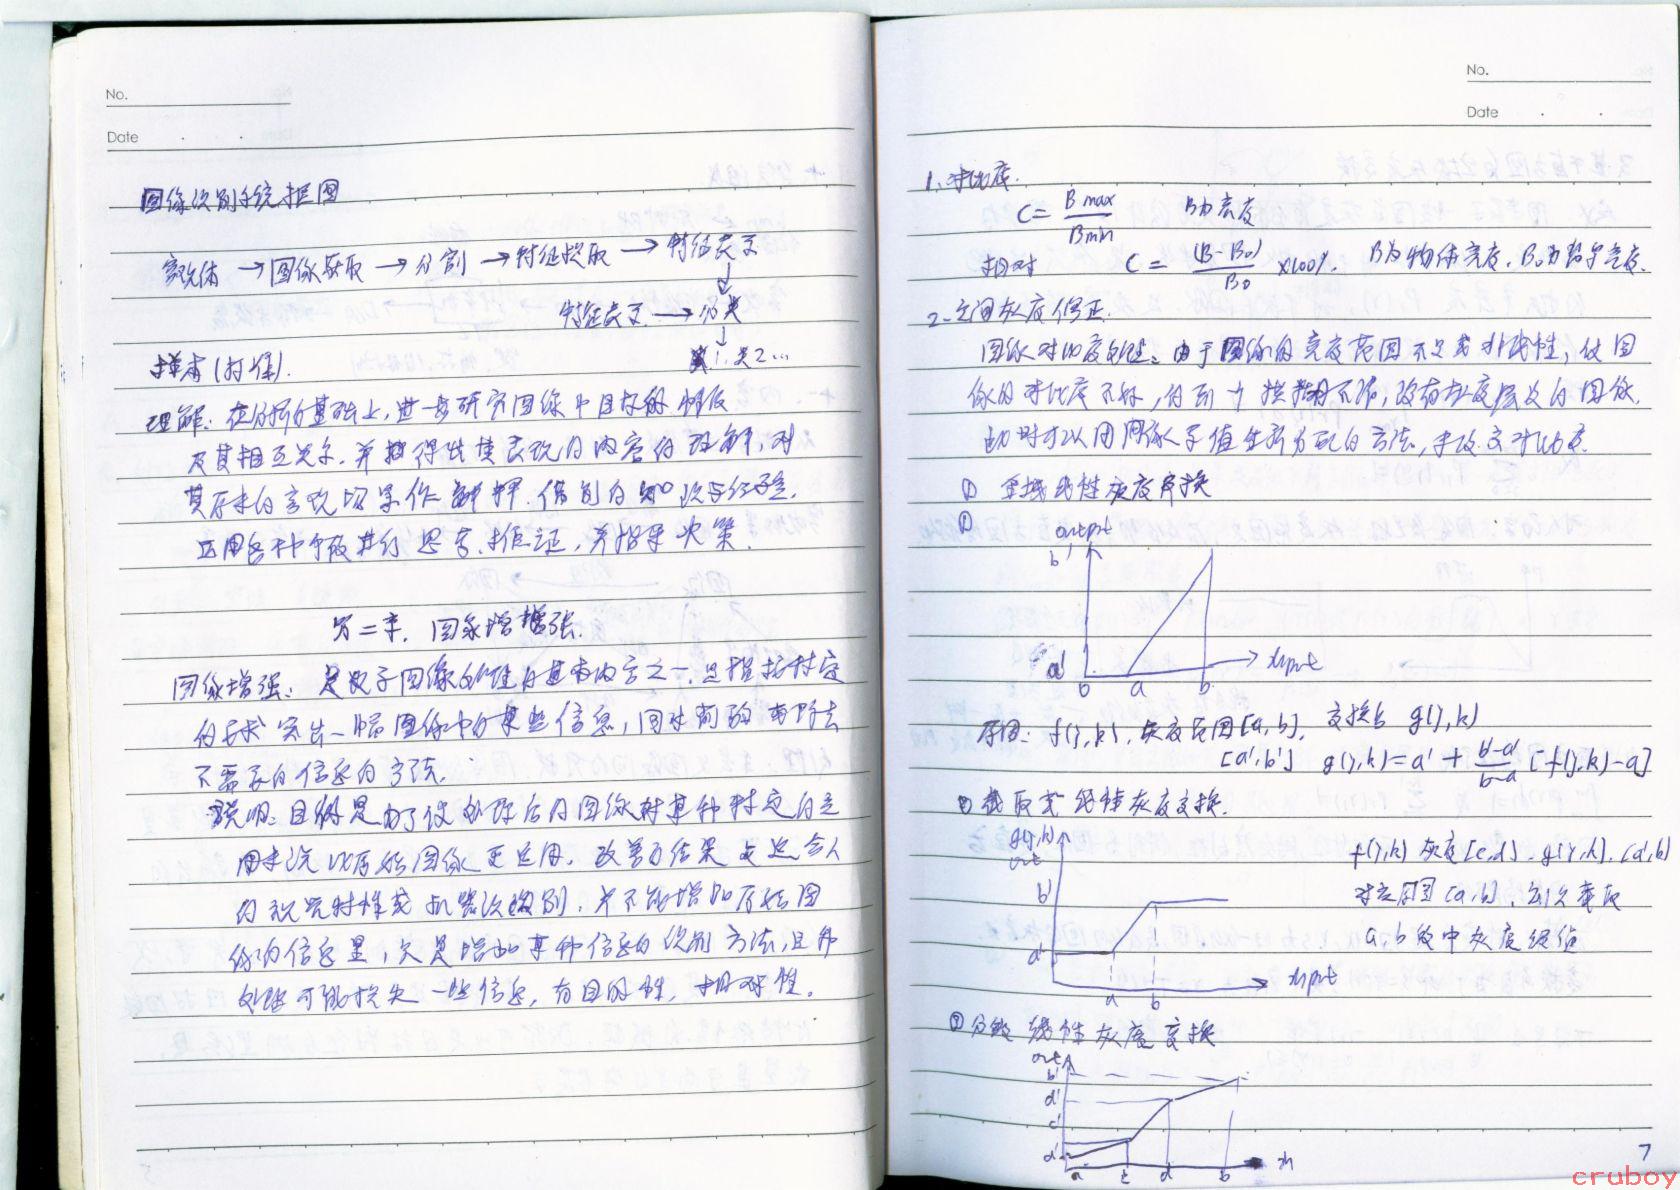 No.
Date
图像识别系统框图
客观体 → 图像获取 → 分割 → 特征提取 → 特征表文
特征表文 → 分类
类1. 类2...
样本(均值).
理解: 在分析的基础上, 进一步研究图像中目标的性质
及其相互关系. 并得出其表现的内容的理解, 对
其原来的客观场景作解释. 借用的知识与经验.
运用各种手段进行思考, 推证, 并指导决策.
第二章. 图像增强.
图像增强: 是数字图像处理的基本内容之一, 是指按特定
的要求突出一幅图像中的某些信息, 同时削弱或除去
不需要的信息的方法.
说明: 目的是为了使处理后的图像对某种特定的应
用来说比原始图像更适用. 改善的结果更适合人
的视觉特性或机器识别. 并不能增加原始图
像的信息量, 只是增加某种信息的识别方法, 且
处理可能损失一些信息, 有目的性, 相对性.
No.
Date
1. 对比度.
C = Bmax / Bmin B为亮度
相对 C = (B-B₀) / B₀ ×100%. B为物体亮度, B₀为背景亮度.
2. 空间灰度修正.
图像对比度处理: 由于图像的亮度范围不足或非线性, 使图
像的对比度不好, 模糊不清, 没有灰度层次的图像.
此时可以用图像 值重新分配的方法, 来改变对比度.
① 全域线性灰度变换
①
output
b'
a'
0 a b input
原图: f(j,k), 灰度范围[a,b], 变换后 g(j,k)
[a',b'] g(j,k) = a' + (b'-a')/(b-a) [f(j,k)-a]
② 截取式线性灰度变换.
g(j,k)
out
b'
a'
a b input
f(j,k) 灰度[c,d]. g(j,k). [a',b']
对应原图[a,b],
a, b 灰度
③ 分段线性灰度变换
out
b'
d'
c'
a'
a c d b in
7
cruboy